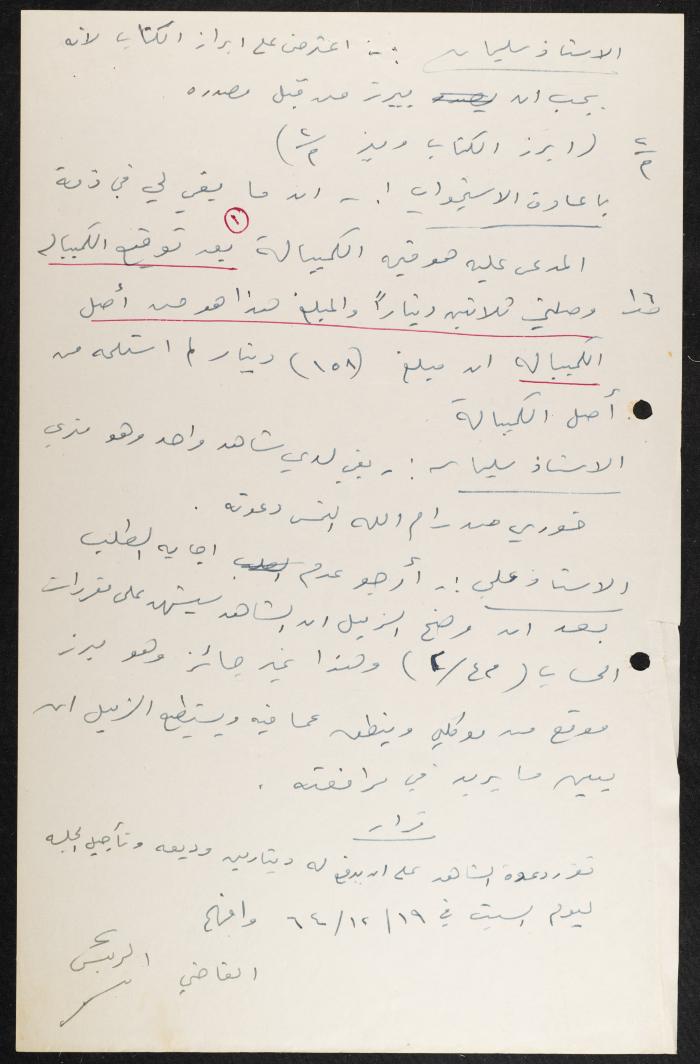 الاستاذ سليمان :- اعترض على ابراز الكتاب لانه
يجب ان يبرز من قبل مصدره
(ابرز الكتاب وميز ع/٢)
ع/٢
باعادة الاستجواب :- ان ما بقي لي في ذمة
المدعى عليه هو قيمة الكمبيالة بعد توقيع الكمبيالة
١
وصلني ثلاثين ديناراً والمبلغ هذا هو من أصل
الكمبيالة ان مبلغ (١٥٨) دينار لم استلمه من
أصل الكمبيالة
الاستاذ سليمان :- بقي لدي شاهد واحد وهو
خوري من رام الله التمس دعوته .
الاستاذ علي :- أرجو عدم اجابة الطلب
بعد ان وضح الزميل ان الشاهد سيشهد على مفردات
الحساب وهذا غير جائز وهو مبرز
موقع من موكلي وينطق عما فيه ويستطيع الزميل ان
يبين ما يريد في مرافعته .
قرار
تقرر دعوة الشاهد على ان يدفع له دينارين وديعه وتأجيل الجلسه
ليوم السبت في ١٩/١٢/٦٤ وافهم
القاضي الرئيس